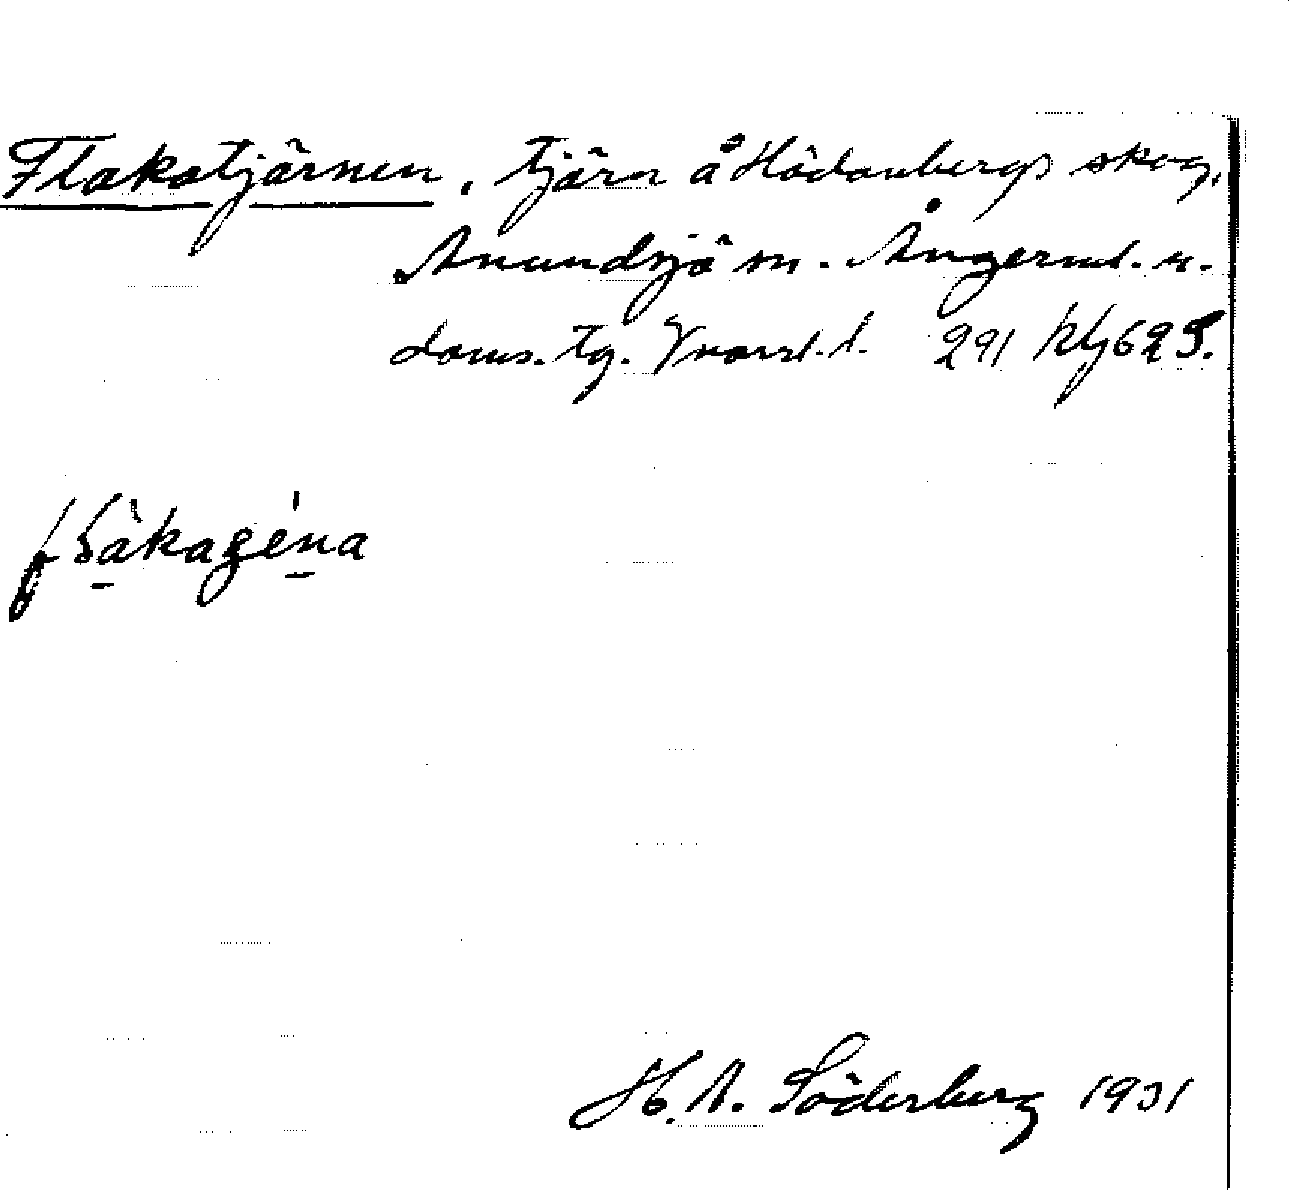 Flakatjärnen, tjärn å Hädanbergs skog,
Anundsjö sn. Ångerml. n.
doms. tg. Vnorrl. l. 291 klj 625.
H. A. Söderberg 1931